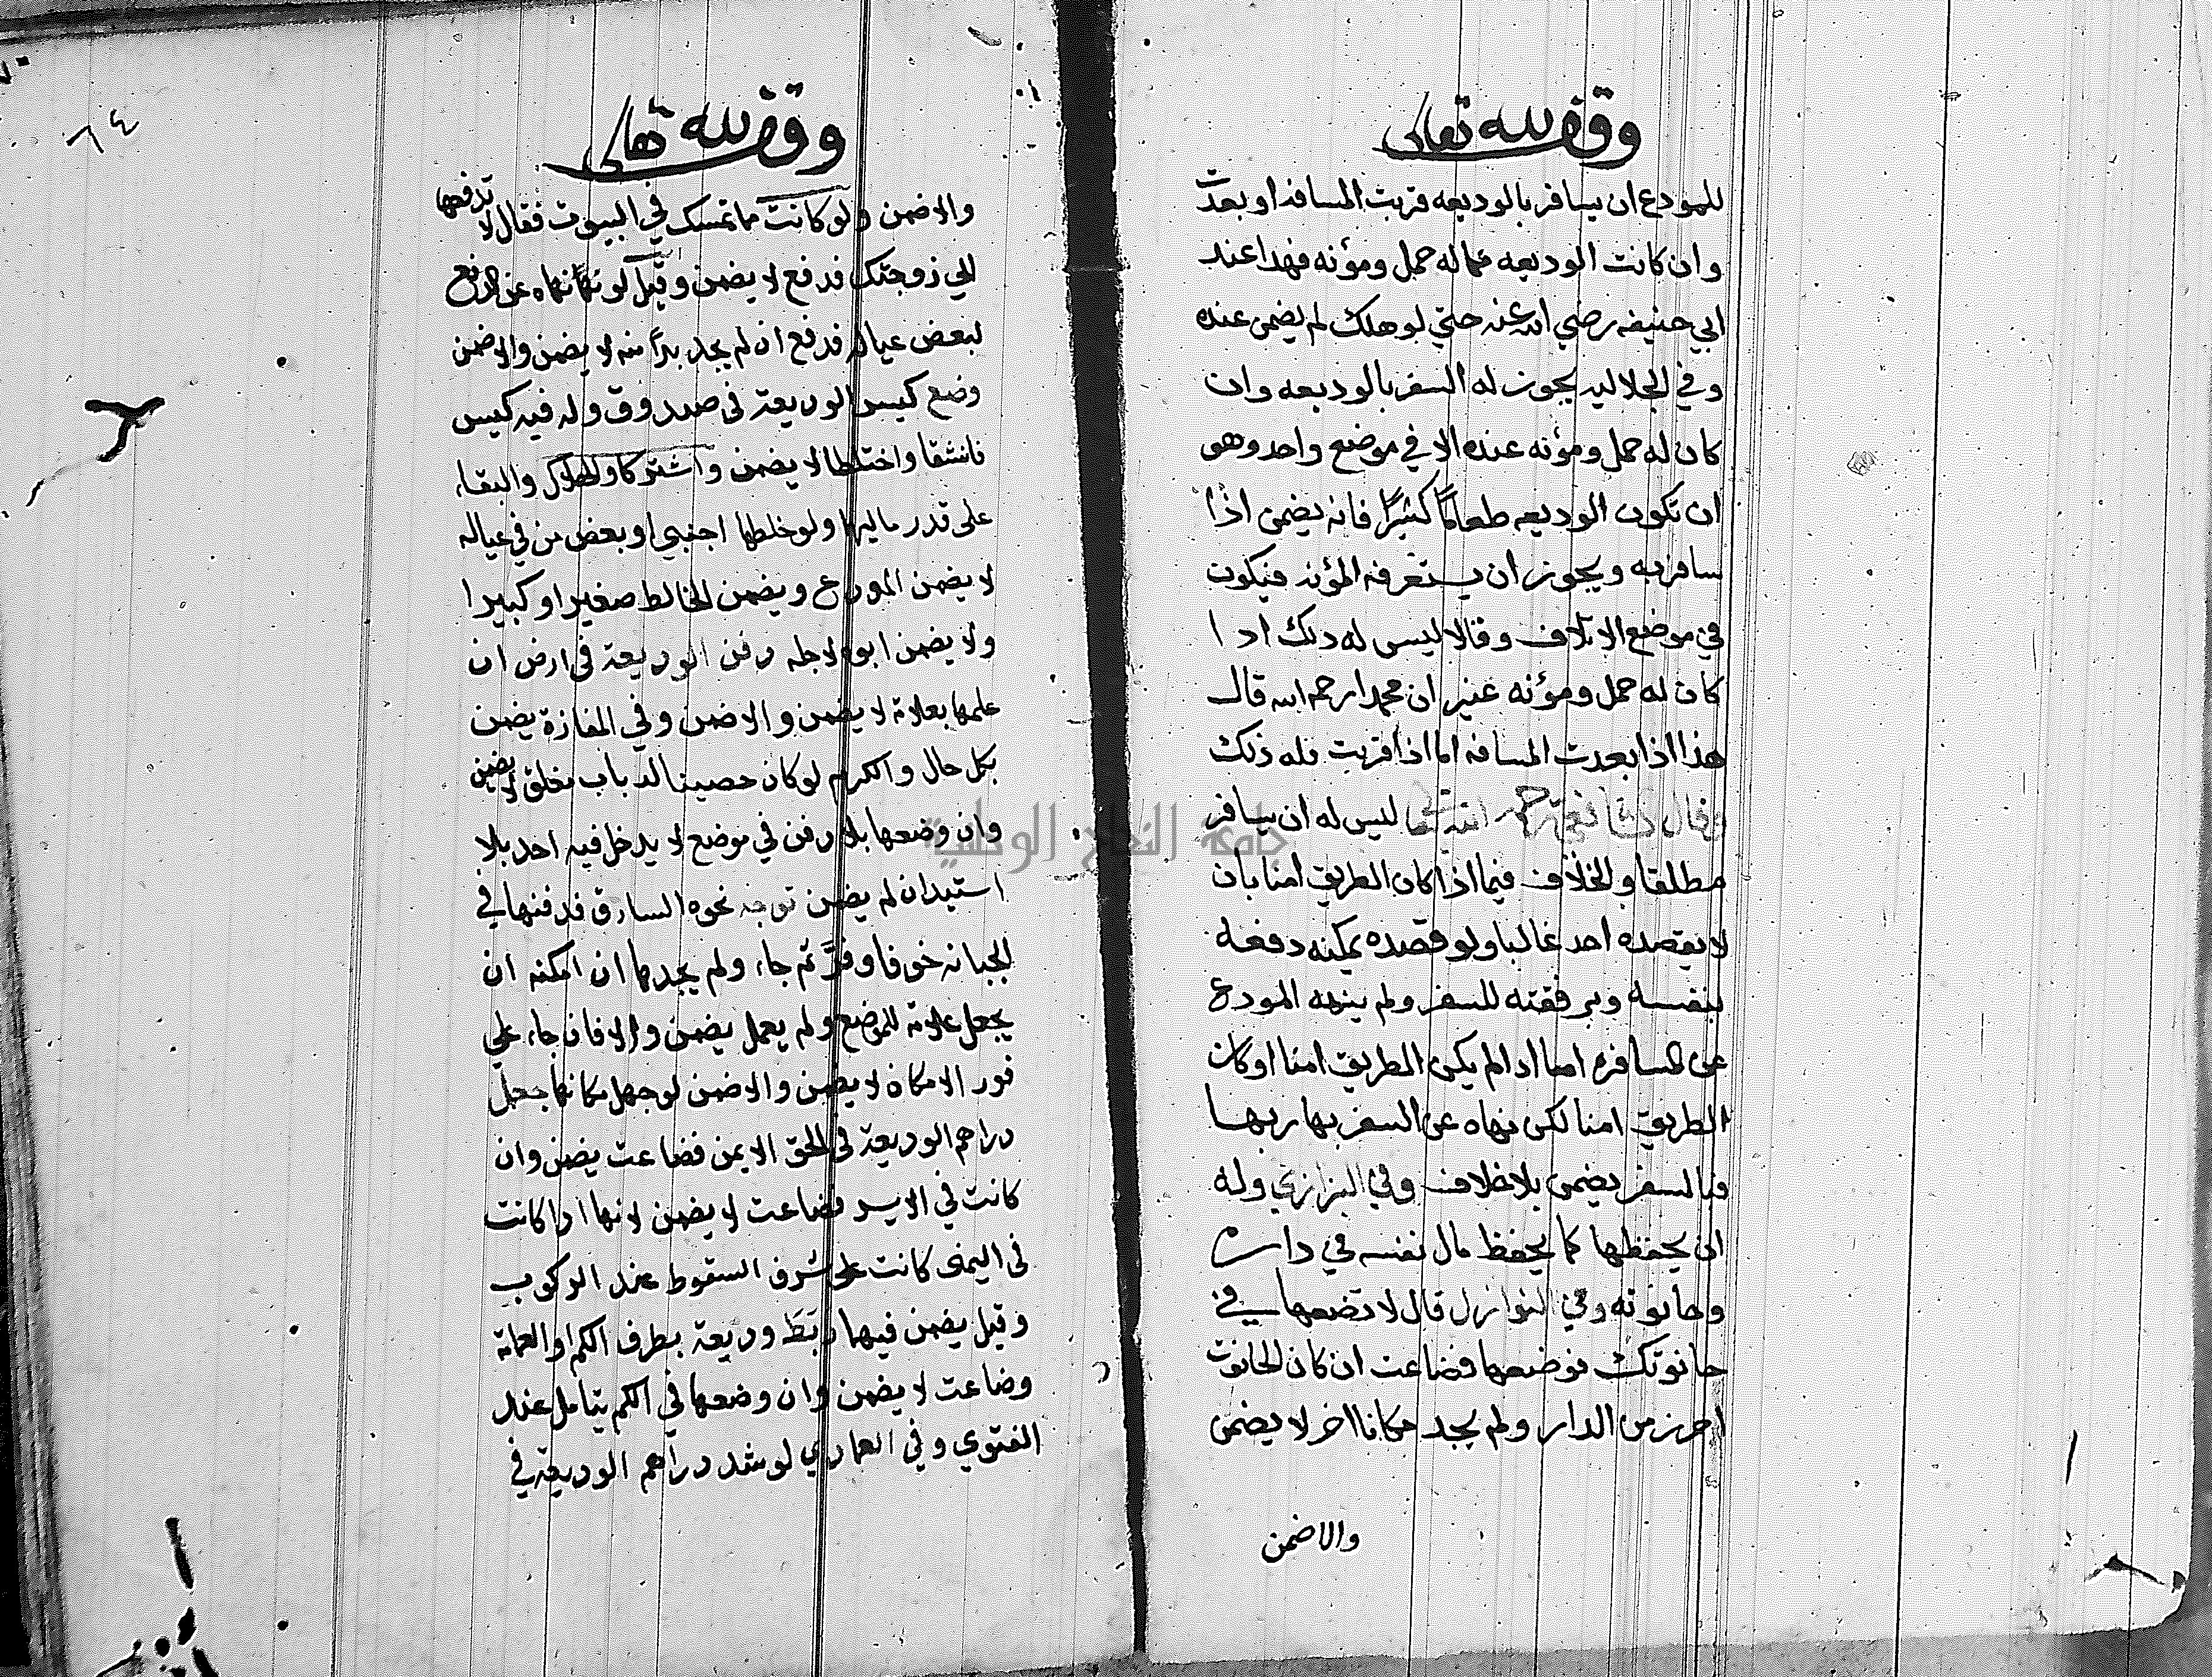 وقف لله تعالى
للمودع ان يسافر بالوديعه قربت المسافه او بعدت
وان كانت الوديعه مما له حمل ومؤنه فهذا عند
ابي حنيفه رضي الله عنه حتي لو هلك لم يضمن عنده
وفي الجلاليه يجوز له السفر بالوديعه وان
كان له حمل ومؤنه عنده الا في موضع واحد وهو
ان تكون الوديعه طعامًا كثيرًا فانه يضمن اذا
سافر به ويجوز ان يستغرقه المؤنه فيكون
في موضع الاتلاف وقالا ليس له ذلك اذا
كان له حمل ومؤنه غير ان محمدا رحمه الله قال
هذا اذا بعدت المسافه اما اذا قربت فله ذلك
وقال الشافعي رحمه الله ليس له ان يسافر
مطلقا والخلاف فيما اذا كان الطريق امنا بان
لا يقصده احد غالبا ولو قصده يمكنه دفعه
بنفسه وبرفقته للسفر ولم ينهه المودع
عن المسافره اما اذا لم يكن الطريق امنا او كان
الطريق امنا لكن نهاه عن السفر بها ربها
فبالسفر يضمن بلا خلاف وفي البزازي وله
ان يحفظها كما يحفظ مال نفسه في داره
وحانوته وفي النوازل قال لا تضعها في
حانوتك فوضعها فضاعت ان كان الحانوت
احرز من الدار ولم يجد مكانا اخر لا يضمن
والا ضمن
٦٤
وقف لله تعالى
والا ضمن ولو كانت مما تمسك في البيوت فقال لا تدفعها
الي زوجتك فدفع لا يضمن وقيل لو نهاه عن الدفع
لبعض عياله فدفع ان لم يجد بدًا منه لا يضمن والا ضمن
وضع كيس الوديعة في صندوق وله فيه كيس
فانشقا واختلطا لا يضمن واشتركا والهلاك والبقاء
على قدر ماليهما ولو خلطها اجنبي او بعض من في عياله
لا يضمن المودع ويضمن الخالط صغيرا او كبيرا
ولا يضمن ابوه لاجله دفن الوديعة في ارض ان
علمها بعلامة لا يضمن والا ضمن وفي المفازة يضمن
بكل حال والكرم لو كان حصينا له باب مغلق لا يضمن
وان وضعها بلا دفن في موضع لا يدخل فيه احد بلا
استيذان لم يضمن توجه نحوه السارق فدفنها في
الجبانه خوفا وفرَّ ثم جاء ولم يجدها ان امكنه ان
يجعل علامة للموضع ولم يعمل يضمن والا فان جاء علي
فور الامكان لا يضمن والا ضمن لو جهل مكانها جعل
دراهم الوديعة في الخق الايمن فضاعت يضمن وان
كانت في الايسر فضاعت لا يضمن لانها اذا كانت
في اليمنى كانت على شرف السقوط عند الركوب
وقيل يضمن فيها ربط وديعة بطرف الكم او العمامة
وضاعت لا يضمن وان وضعها في الكم يتامل عند
الفتوي وفي العمادي لو شد دراهم الوديعة في
جامعة النجاح الوطنية